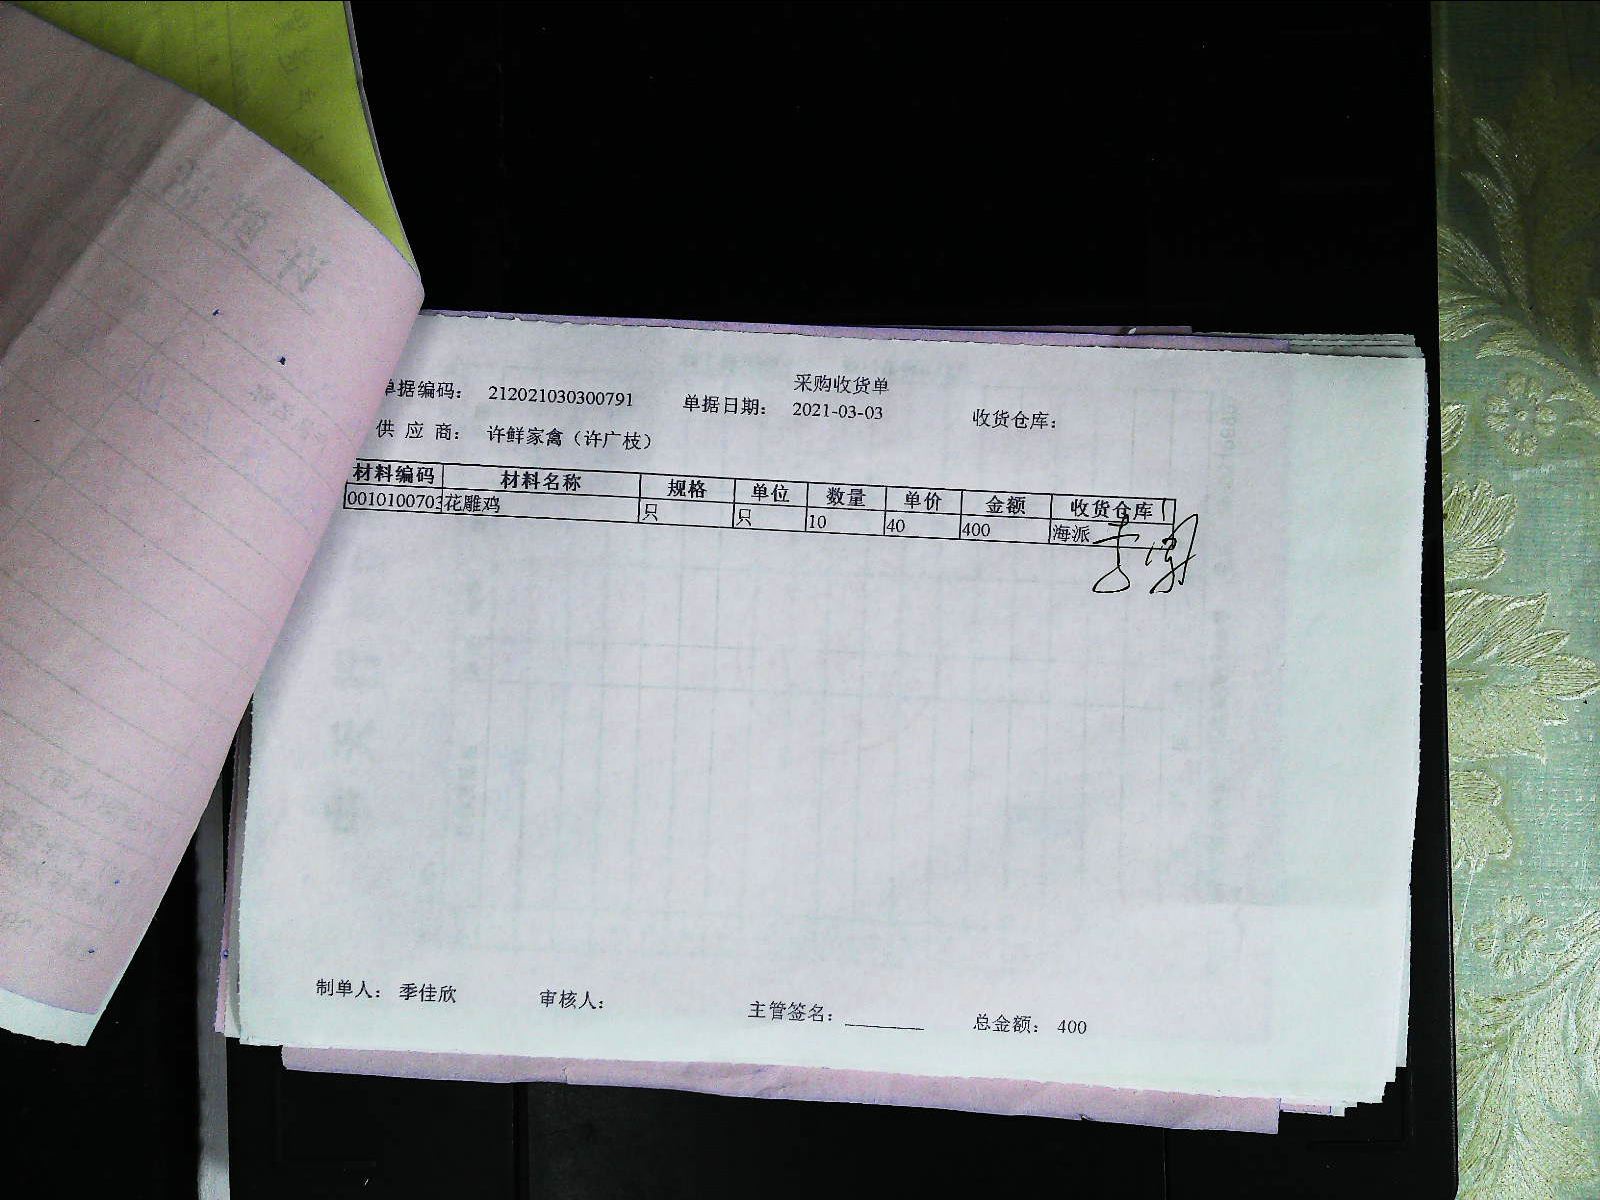 采购收货单
单据编码： 212021030300791 单据日期： 2021-03-03 收货仓库：
供 应 商： 许鲜家禽（许广枝）
材料编码 材料名称 规格 单位 数量 单价 金额 收货仓库
0010100703 花雕鸡 只 只 10 40 400 海派
制单人： 季佳欣 审核人： 主管签名： 总金额： 400